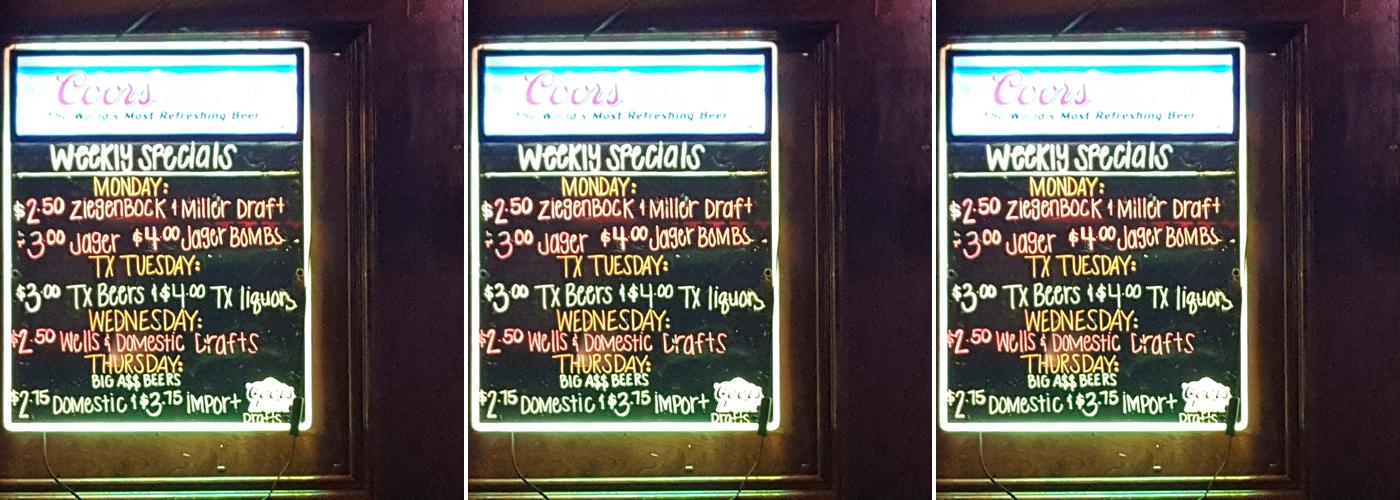 Coors
The World's Most Refreshing Beer
Weekly Specials
MONDAY:
$2.50 ZiegenBock & Miller Draft
$3.00 Jager $4.00 Jager BOMBS
TX TUESDAY:
$3.00 TX Beers & $4.00 TX liquors
WEDNESDAY:
$2.50 Wells & Domestic Drafts
THURSDAY:
BIG A$$ BEERS
$2.75 Domestic & $3.75 Import
Coors
Drafts
Coors
The World's Most Refreshing Beer
Weekly Specials
MONDAY:
$2.50 ZiegenBock & Miller Draft
$3.00 Jager $4.00 Jager BOMBS
TX TUESDAY:
$3.00 TX Beers & $4.00 TX liquors
WEDNESDAY:
$2.50 Wells & Domestic Drafts
THURSDAY:
BIG A$$ BEERS
$2.75 Domestic & $3.75 Import
Coors
Drafts
Coors
The World's Most Refreshing Beer
Weekly Specials
MONDAY:
$2.50 ZiegenBock & Miller Draft
$3.00 Jager $4.00 Jager BOMBS
TX TUESDAY:
$3.00 TX Beers & $4.00 TX liquors
WEDNESDAY:
$2.50 Wells & Domestic Drafts
THURSDAY:
BIG A$$ BEERS
$2.75 Domestic & $3.75 Import
Coors
Drafts